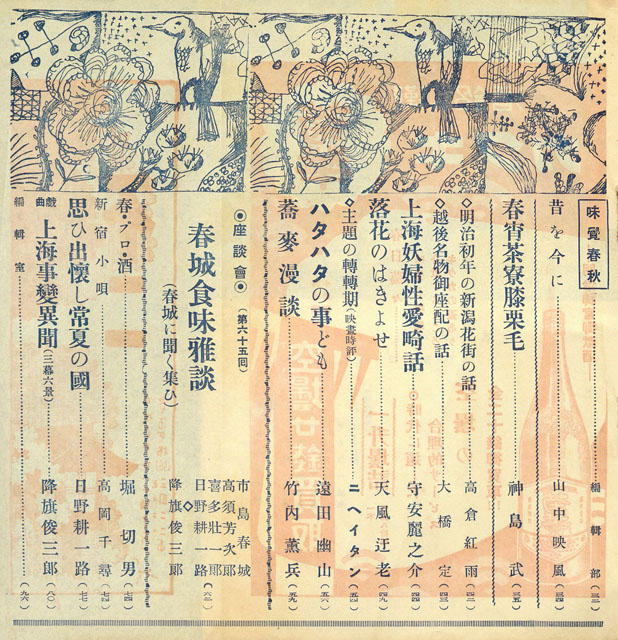 味覺春秋……編輯部(三二)
昔を今に……山中映風(三四)
春宵茶寮膝栗毛……神島武(三五)
◇明治初年の新潟花街の話……高倉紅雨(四二)
◇越後名物御座配の話……大橋定(四三)
上海妖婦性愛畸話……守安麗之介(四四)
落花のはきよせ……天風迂老(四九)
◇主題の轉轉期(映畫時評)……ニヘイタン(五四)
ハタハタの事ども……遠田幽山(五六)
蕎麥漫談……竹内薰兵(五九)
◉座談會◉(第六十五囘)
春城食味雅談
(春城に聞く集ひ)
市島春城
高須芳次郎
喜多壯一郎
日野耕一路
◇
降旗俊三郎(六二)
春・プロ・酒……堀切男(七四)
新宿小唄……高岡千尋(七四)
思ひ出懷し常夏の國……日野耕一路(七七)
戲曲 上海事變異聞(三幕六景)……降旗俊三郎(八〇)
編輯室……(九六)